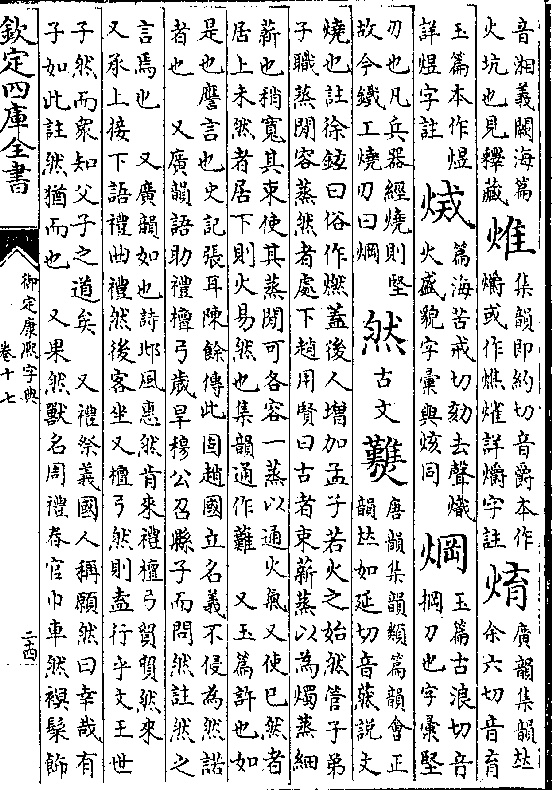 音湘義闕海篇
火坑也見釋藏
集韻即約切音爵本作
爝或作燋㸌詳爝字註
焴
廣韻集韻𠀤
余六切音育
玉篇本作煜
詳煜字註
篇海苦戒切刻去聲熾
火盛貌字彙與烗同
焹
玉篇古浪切音
掆刀也字彙堅
刃也凡兵器經燒則堅
故今鐵工燒刃曰焹
然
古文
唐韻集韻類篇韻會正
韻𠀤如延切音 說文
燒也註徐鉉曰俗作燃蓋後人增加孟子若火之始然管子弟
子職蒸閒容蒸然者處下趙用賢曰古者束薪蒸以為燭蒸細
薪也稍寬其束使其蒸閒可各容一蒸以通火氣又使已然者
居上未然者居下則火易然也集韻通作難　又玉篇許也如
是也譍言也史記張耳陳餘傳此固趙國立名義不侵為然諾
者也　又廣韻語助禮檀弓歲旱穆公召縣子而問然註然之
言焉也　又廣韻如也詩邶風惠然肯來禮檀弓貿貿然來
又承上接下語禮曲禮然後客坐又檀弓然則盍行乎文王世
子然而衆知父子之道矣　又禮祭義國人稱願然曰幸哉有
子如此註然猶而也　又果然獸名周禮春官巾車然䙏髤飾
欽定四庫全書
御定康熙字典
卷十七
二四